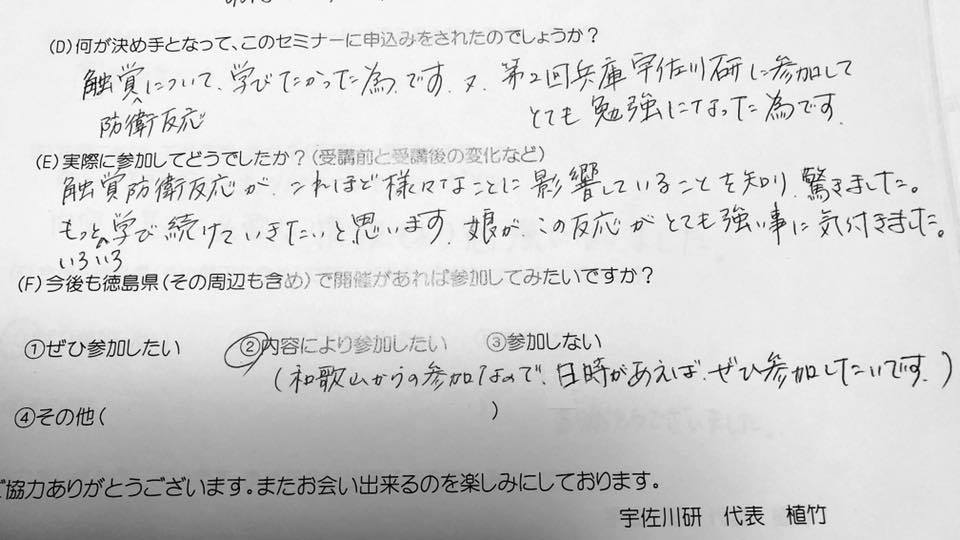 (D)何が決め手となって、このセミナーに申込みをされたのでしょうか？
触覚について、学びたかった為です。又、第2回兵庫宇佐川研に参加して
防衛反応
とても勉強になった為です。
(E)実際に参加してどうでしたか？(受講前と受講後の変化など)
触覚防衛反応が、これほど様々なことに影響していることを知り、驚きました。
もっと学び続けていきたいと思います。娘が、この反応がとても強い事に気付きました。
いろいろ
(F)今後も徳島県(その周辺も含め)で開催があれば参加してみたいですか？
①ぜひ参加したい ②内容により参加したい ③参加しない
(和歌山からの参加なので、日時があえば、ぜひ参加したいです。)
④その他( )
ご協力ありがとうございます。またお会い出来るのを楽しみにしております。
宇佐川研 代表 植竹